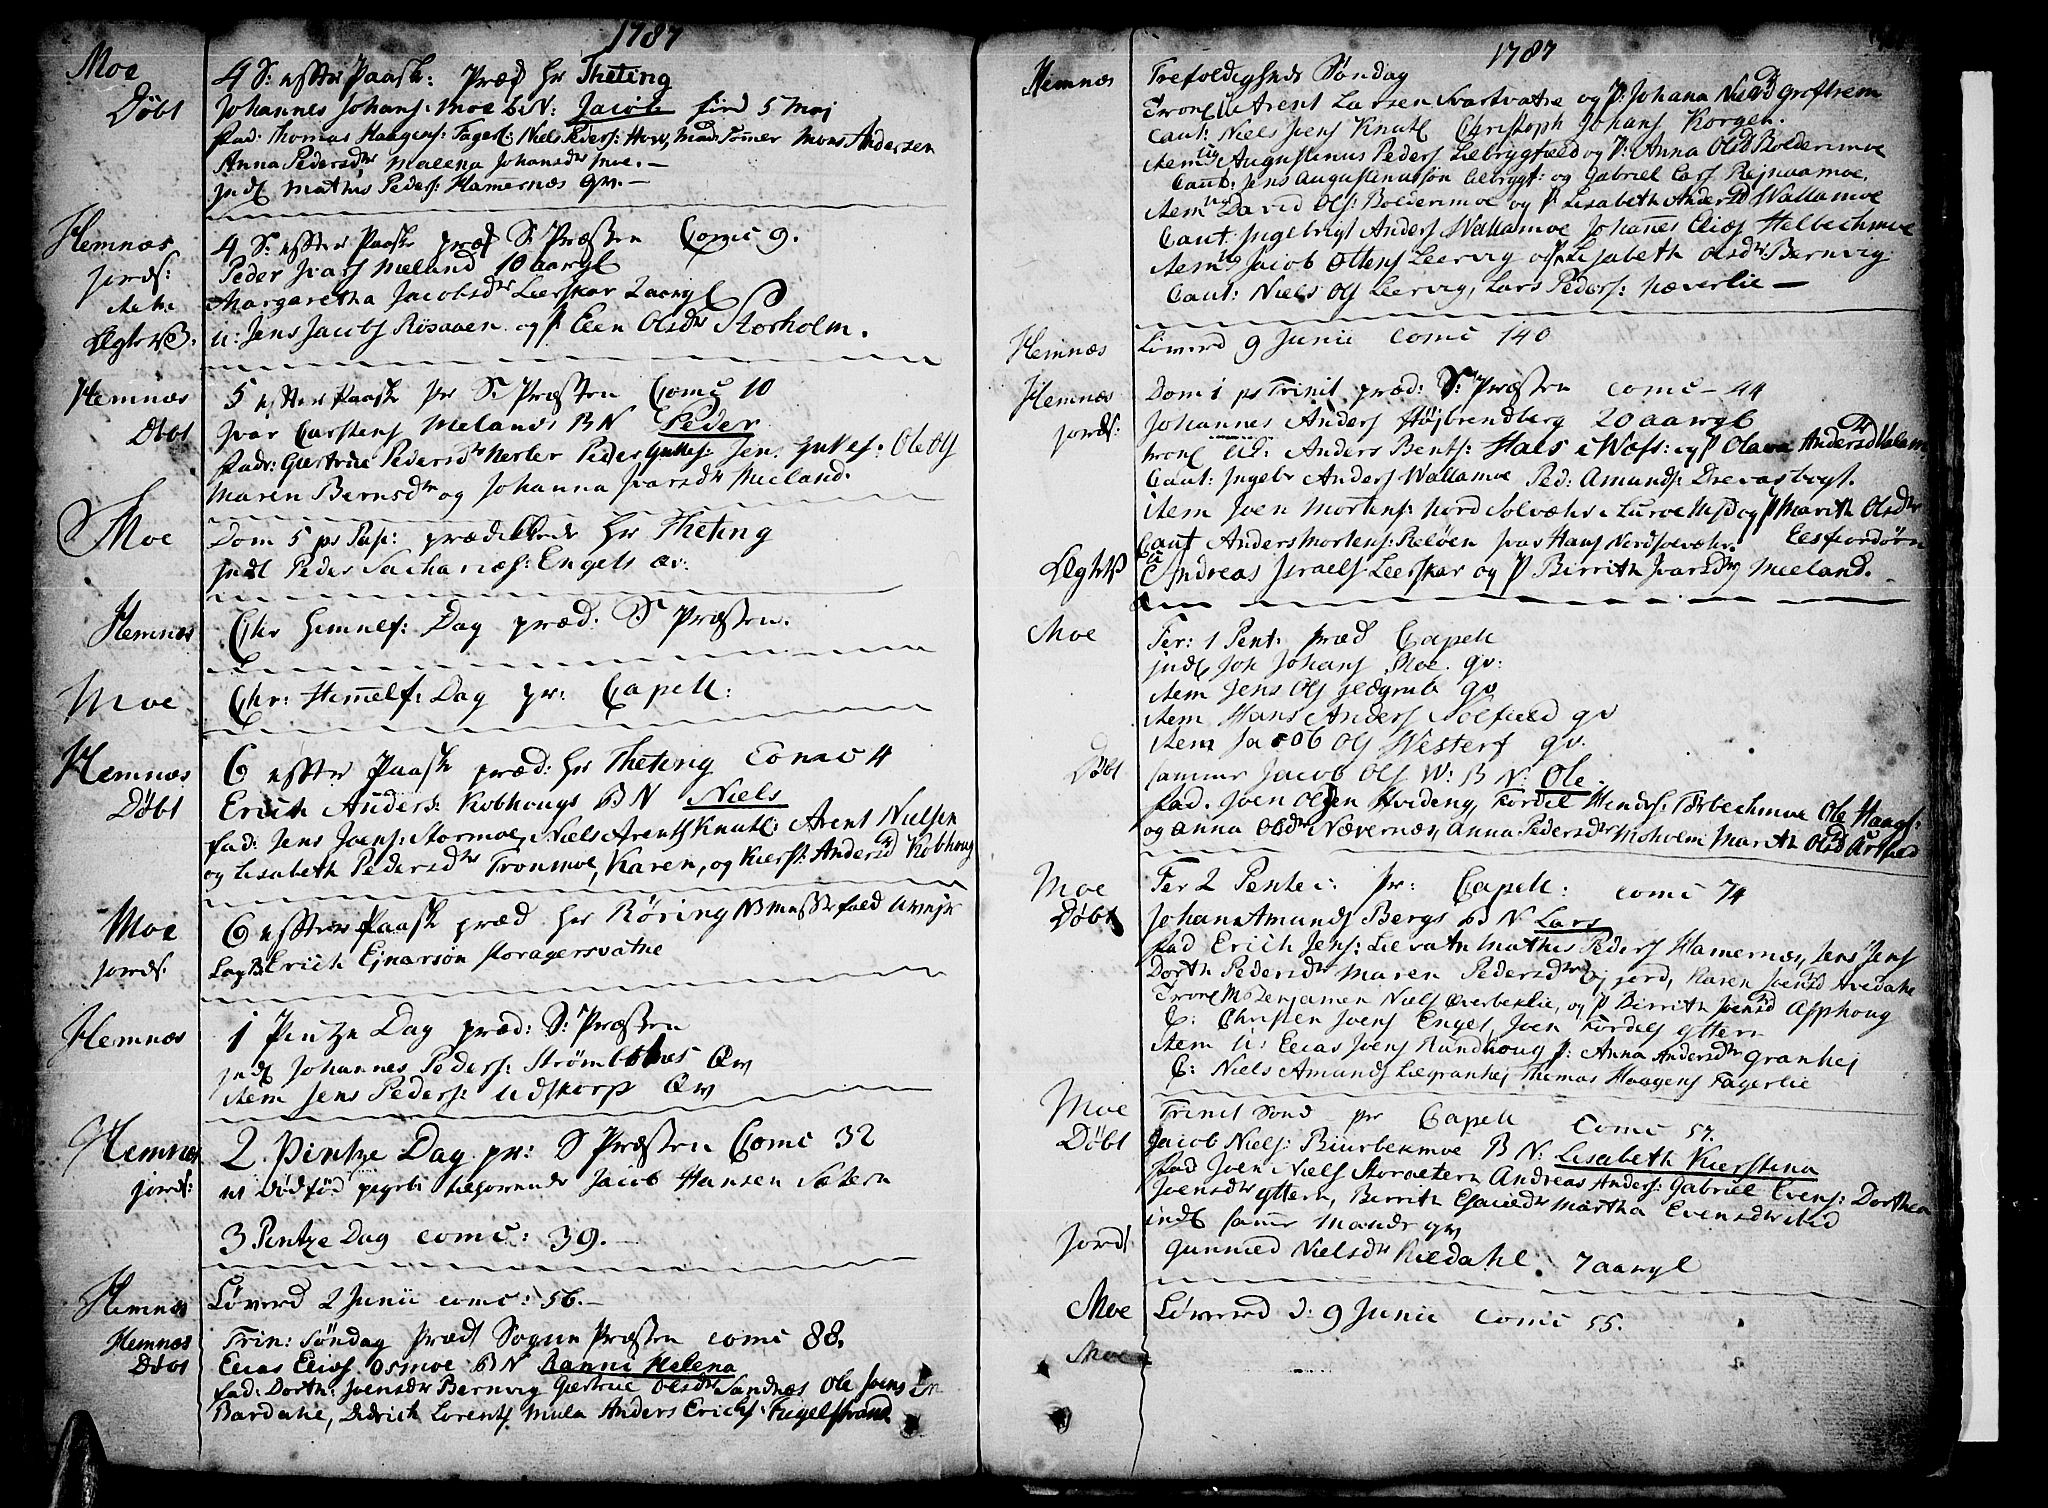 1787
Moe 4 S: efter Paask: Præd Hr Theting
Døbt Johannes Johans: Moe B.N: Jacob fød 5 Maj
fad: Thomas Haagens: Fagerl: Niels Peders: How, Mad Tømer Mons Andersen
Anna Pedersdr Malena Johansdr Moe. —
Indl Mathis Peders: Hamernæs qv. —
Hemnæs 4 S: efter Paask præd S: Præsten Comc 9.
jords: Peder Ivars Meland 10 aargl
item Margaretha Jacobsdr Leerskar 2 aargl
Ægtev. u: Jens Jacobs Røsaaen og P Elen Olsdr Storholm.
Hemnæs 5 efter Paask pr S: Præsten Comc 10
Døbt Ivar Carstens Melands B N Peder
fadr: Giertrue Pedersdr Peder Jens Ole Ols
Maren Bernsdr og Johanna Ivarsdr Meland.
Moe Dom 5 ps Pas: prædikede Hr Theting
Indl Peder Sacharies: Engels æv:
Hemnæs Chr Himelf: Dag præd: S: Præsten.
Moe Chr: Himelf: Dag pr: Capell:
Hemnæs 6 efter Paask præd: Hr Theting Comc 4
Døbt Erich Anders: Kobhougs B N Niels
fad: Jens Joens: Stormoe, Niels Arents Knutl: Arent Nielsen
og Lisabeth Pedersdr Tronmoe, Karen, og Kierst: Andersd Kobhoug
Moe 6 efter Paask præd Hr Röring NB
jords: Erich Ejnarsøn Storagersvatne
Hemnæs 1 Pintze Dag præd: S: Præsten
Indl Johannes Peders: Strømbotnes Qv
item Jens Peders: Udskarp Qv
Hemnæs 2. Pintze Dag pr: S Præsten Comc 32
jords: et dødfød pigeb: tilhørende Jacob Hansen Sætern
3 Pintze Dag comc: 39. —
Hemnæs Løverd 2 Junii comc: 56. —
Hemnæs Trin: Søndag Præd Sogne Præsten comc 88.
Døbt Elias Elies Osmoe B N Ranni Helena
fad: Dorth: Joensdr Bernvig Giertrue Olsdr Sandnæs Ole Joens
Bardahl, Didrich Lorents Mula Anders Erichs: Fugelstrand
1787
Hemnæs Trefoldigheds Søndag
Trol: Arent Larsen Svartvatne og P: Johana Nielsd Groftrem
Caut: Niels Joens Knutl Christoph Johans Korgen.
item Augustinus Peders Leebrygfield og P: Anna Olsd Boldermoe
Caut: Jens Augustinussøn Leebrygt: og Gabriel Lars Rejnaamoe.
item David Ols: Boldermoe og P Lisabeth Andersd Wallamoe
Caut: Ingebrigt Anders Wallamoe Johannes Elies Helbechmoe
item Jacob Ottens Leervig og P Lisabeth Olsdr: Bernvig
Caut: Niels Ols Leervig, Lars Peders: Næverlie —
Hemnæs Löverd 9 Junii comc 140
Hemnæs Dom 1 ps Trinit præd: S: Præsten comc — 44
jords: Johannes Anders Højbrendberg 20 aargl
Anders Bents: Hals i Wefs: og P Olava Andersd Walam
Caut: Ingebr Anders Wallamoe Ped: Amunds: Drevasbygt.
item Joen Mortens: Nord Solvær i Luroe og P Marith Olsdr
Caut Anders Mortens: Reløen Ivar Hans Nordsolvær. Leesfiordøren
Ægtev Andreas Israels Leerskar og P Birrith Ivarsdr Meeland.
Moe Fer: 1 Pent: præd Capell
Indl Joh Johans Moe. qv:
item Jens Ols Jedgrub qv
item Hans Anders Solfield qv
item Jacob Ols Westerf qv.
Døbt sammes Jacob Ols W: B N: Ole.
fad. Joen Olsen Hvideng, Fordel Hends: Tørbechmoe Ole Haags:
og Anna Olsdr Nævernæs, Anna Pedersdr Moholm Marith Olsd
Moe Fer 2 Pentec: pr: Capell: comc 74
Døbt Johan Amunds Bergs B N Lars
fad Erich Jens: Mathis Peders Hamernæs, Jens Jens
Dorth Pedersdr Maren Pedersdr Karen Joensd Hvedahl
Trol Benjamen Niels Overbeslie, og P Birrith Joensd Asphoug
C: Christen Joens Engel, Joen Fordels Ytteren
item U: Elias Joens Rundhoug P: Anna Andersdr Granhej
C: Niels Amunds Lilegranhej Thomas Haagens Fagerlie
Moe Trinit Sond pr Capell Comc 57.
Døbt Jacob Niels: Biurbekmoe B N: Lisabeth Kierstina
fad Joen Niels Storsetern Andreas Anders: Gabriel Evens: Dorthea
Joensdr Ytteren, Birrith Martha Evensdr ibid
indl samme Mands qv
Jords Gunnild Nielsdr Kildahl. 7 aargl
Moe Löverd d: 9 Junii comc 55.
Moe